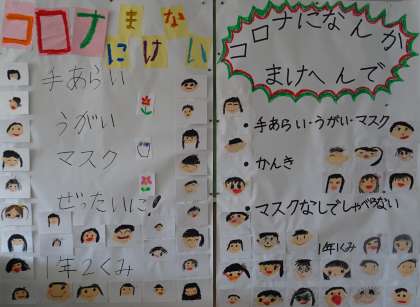 コロナまな
にけい
手あらい
うがい
マスク
ぜったいに!
1年2くみ
コロナになんか
まけへんで
・手あらい・うがい・マスク
・かんき
・マスクなしでしゃべらない
1年1くみ